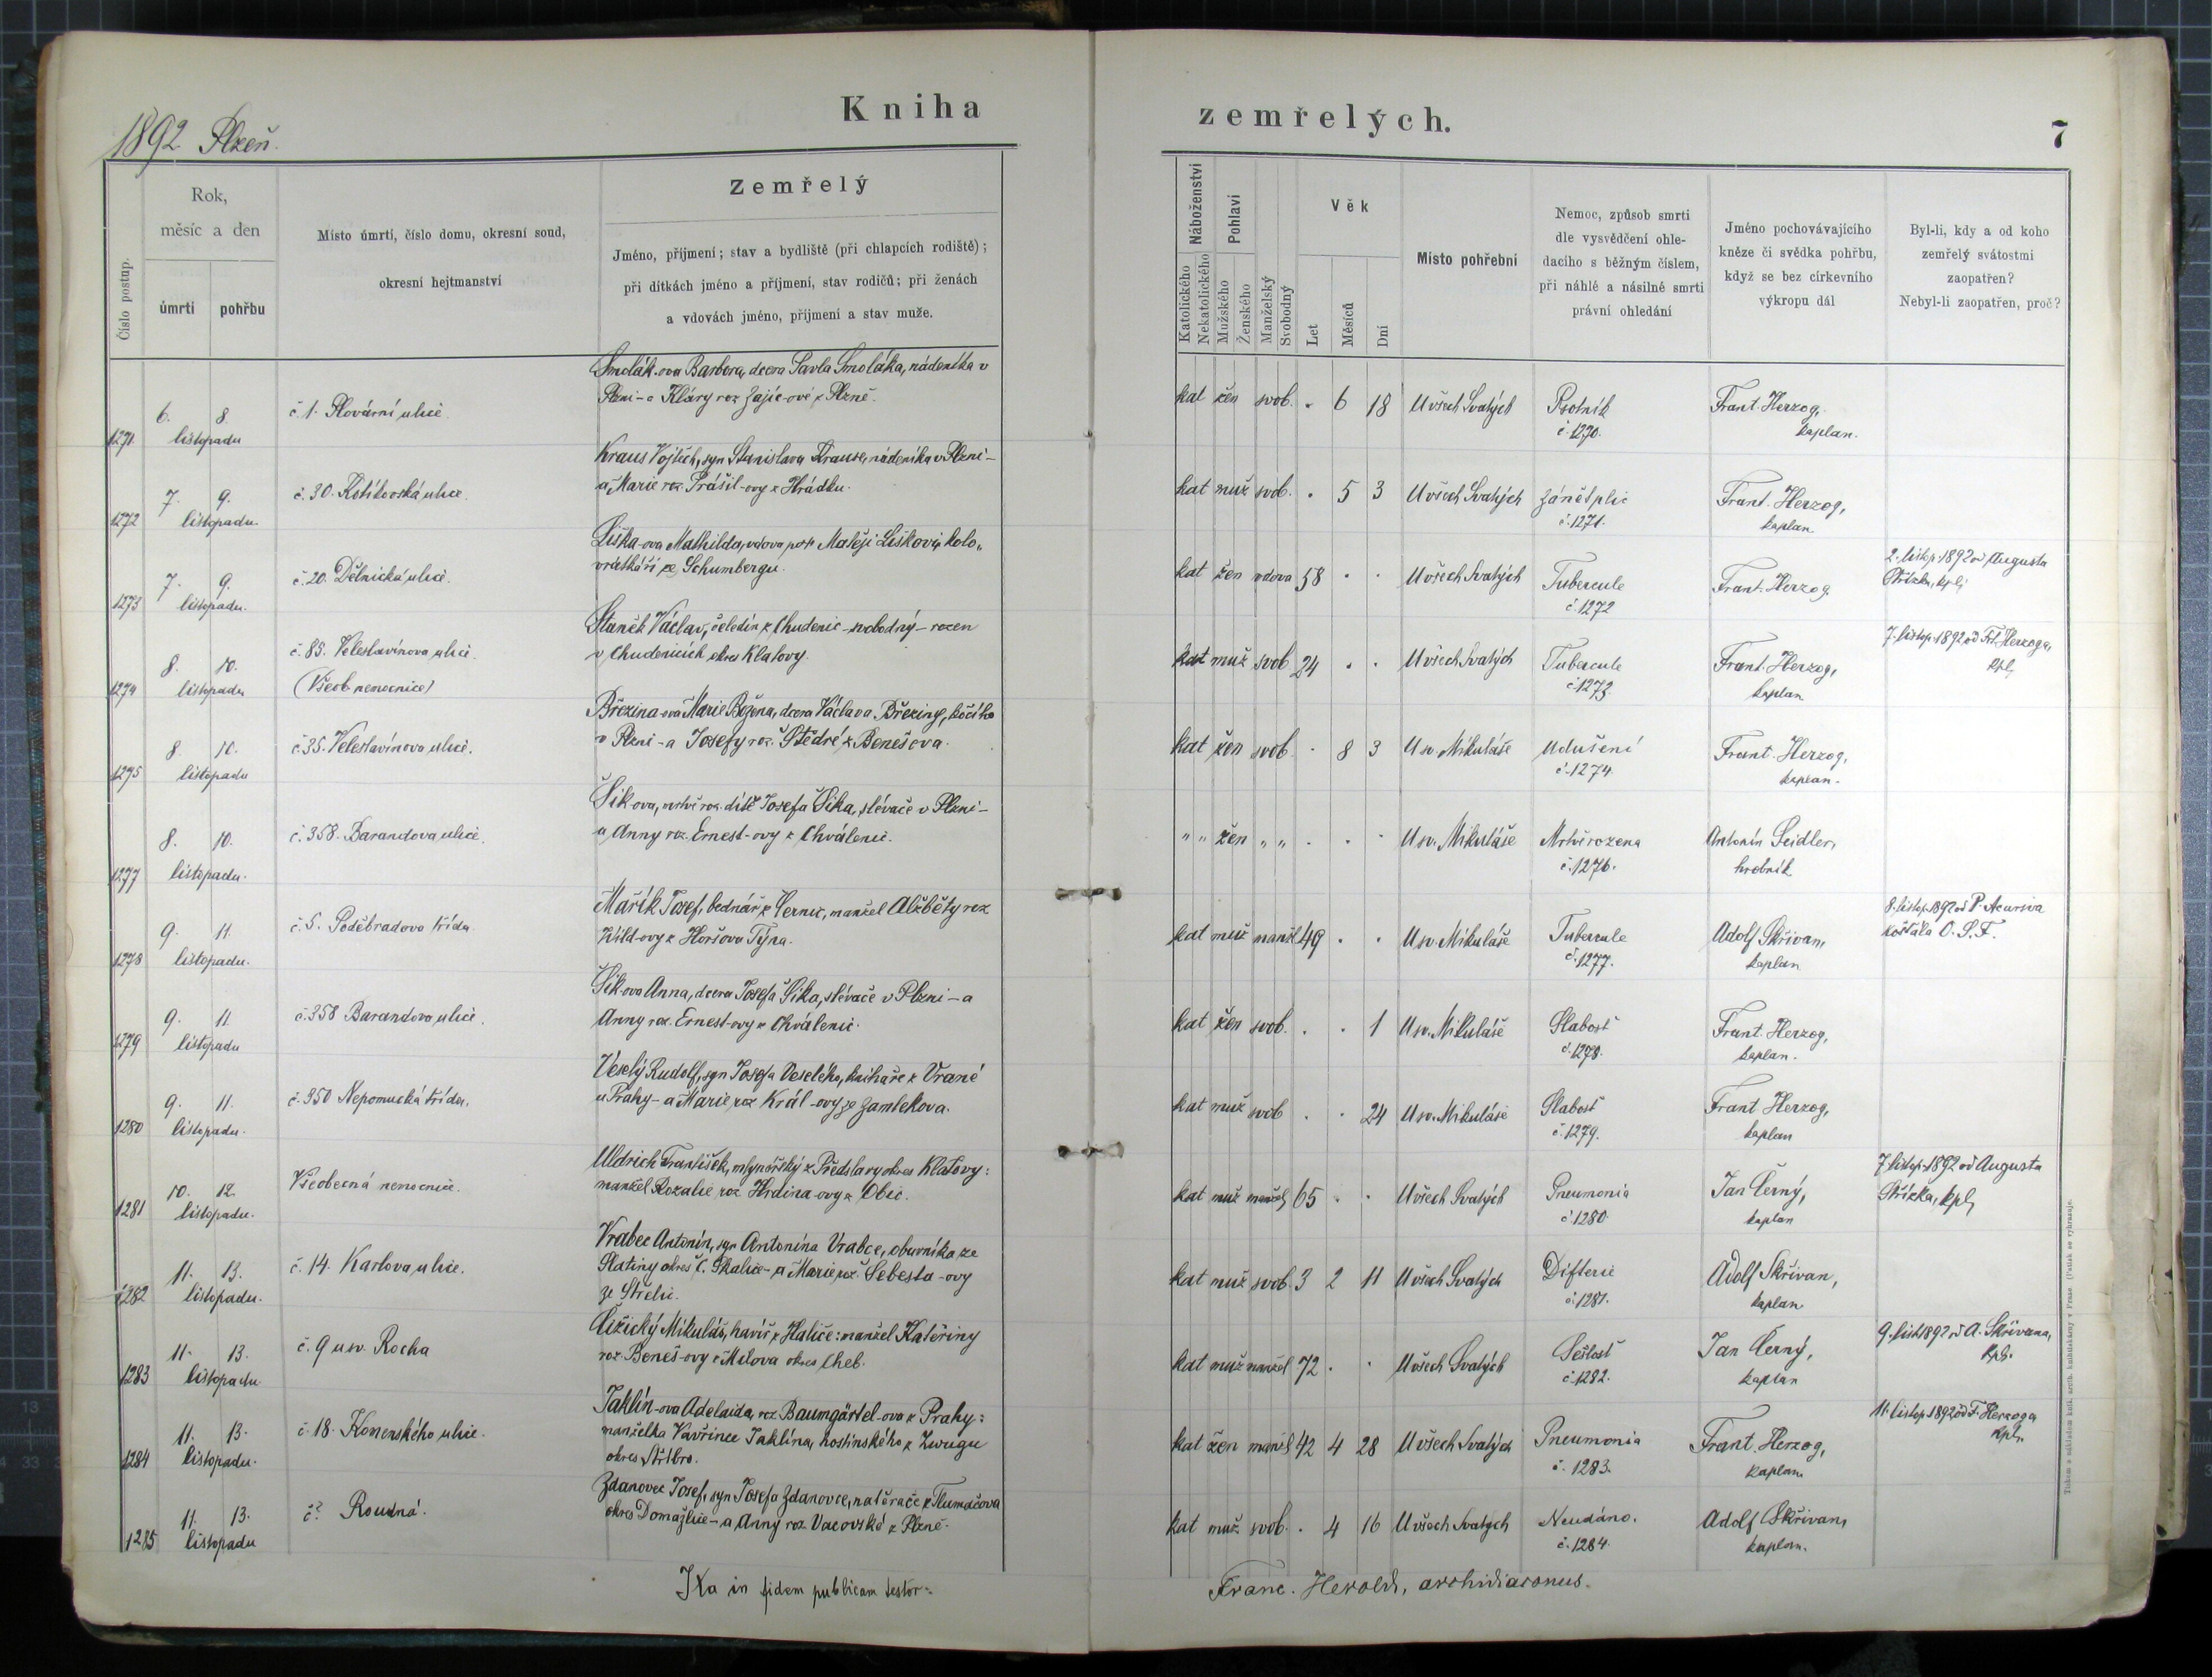 Kniha zemřelých.
1892 Plzeň.
7
Číslo postup.
Rok,
měsíc a den
úmrtí
pohřbu
Místo úmrtí, číslo domu, okresní soud,
okresní hejtmanství
Zemřelý
Jméno, příjmení; stav a bydliště (při chlapcích rodiště);
při dítkách jméno a příjmení, stav rodičů; při ženách
a vdovách jméno, příjmení a stav muže.
Náboženství
Katolického
Nekatolického
Pohlaví
Mužského
Ženského
Manželský
Svobodný
Věk
Let
Měsíců
Dní
Místo pohřební
Nemoc, způsob smrti
dle vysvědčení ohle-
dacího s běžným číslem,
při náhlé a násilné smrti
právní ohledání
Jméno pochovávajícího
kněze či svědka pohřbu,
když se bez církevního
výkropu dál
Byl-li, kdy a od koho
zemřelý svátostmi
zaopatřen?
Nebyl-li zaopatřen, proč?
Smolák-ova Barbora, dcera Pavla Smoláka, nádeníka v
Plzni - a Kláry roz. Zajíc-ové z Plzně.
1271 6. 8. listopadu
č. 1. Plovární ulice.
kat žen svob. . 6 18 U všech Svatých
Psotník
č. 1270.
Frant. Herzog,
kaplan.
Kraus Vojtěch, syn Stanislava Krause, nádeníka v Plzni -
a Marie roz. Prášil-ovy z Hrádku.
1272 7. 9. listopadu.
č. 30. Kotíkovská ulice.
kat muž svob. . 5 3 U všech Svatých
Zánět plic
č. 1271.
Frant. Herzog,
kaplan
Liška-ova Mathilda, vdova po Matěji Liškovi, kolo„
vrátkáři ze Schumbergu.
1273 7. 9. listopadu.
č. 20. Dělnická ulice.
kat žen vdova 58 . . U všech Svatých
Tubercule
č. 1272
Frant. Herzog
2. listop. 1892 od Augusta
Střízka, kpl.
Staněk Václav, čeledín z Chudenic - svobodný - rozen
v Chudenicích okres Klatovy.
1274 8. 10. listopadu
č. 85. Veleslavínova ulice.
(Všeob. nemocnice)
kat muž svob 24 . . U všech Svatých
Tubercule
č. 1273.
Frant. Herzog,
kaplan
7. listop. 1892 od Frt. Herzoga,
kpl.
Březina-ova Marie Božena, dcera Václava Březiny, kočího
v Plzni - a Josefy roz. Štědré z Benešova.
1275 8 10. listopadu
č. 35. Veleslavínova ulice.
kat žen svob. . 8 3 U sv. Mikuláše
Udušení
č. 1274.
Frant. Herzog,
kaplan.
Šik-ova, mrtvě roz. dítě Josefa Šika, slévače v Plzni -
a Anny roz. Ernest-ovy z Chválenic.
1277 8. 10. listopadu.
č. 358. Barandova ulice.
" " žen " " . . . U sv. Mikuláše
Mrtvě rozena
č. 1276.
Antonín Seidler,
hrobník
Mařík Josef, bednář z Černic, manžel Alžběty roz
Wild-ovy z Horšova Týna.
1278 9. 11. listopadu.
č. 5. Poděbradova třída.
kat muž manžl 49 . . U sv. Mikuláše
Tubercule
č. 1277.
Adolf Skřivan,
kaplan
8. listop. 1892 od P. Acursia
Košťála O. S. F.
Šik-ova Anna, dcera Josefa Šika, slévače v Plzni - a
Anny roz. Ernest-ovy z Chválenic.
1279 9. 11. listopadu
č. 358 Barandova ulice.
kat žen svob. . . 1 U sv. Mikuláše
Slabosť
č. 1278.
Frant. Herzog,
kaplan.
Veselý Rudolf, syn Josefa Veselého, knihaře z Vrané
u Prahy - a Marie roz Král-ovy ze Zamlekova.
1280 9. 11. listopadu.
č. 350 Nepomucká třída.
kat muž svob . . 24 U sv. Mikuláše
Slabosť
č. 1279.
Frant Herzog,
kaplan
Uldrich František, mlynářský z Předslavy okres Klatovy:
manžel Rozalie roz. Hrdina-ovy z Obic.
1281 10. 12. listopadu.
Všeobecná nemocnice.
kat muž manžel 65 . . U všech Svatých
Pneumonia
č. 1280.
Jan Černý,
kaplan
7. listop. 1892 od Augusta
Střízka, kpl.
Vrabec Antonín, syn Antonína Vrabce, obuvníka ze
Slatiny okres Č. Skalice - a Marie roz. Šebesta-ovy
ze Střelic.
1282 11. 13. listopadu.
č. 14. Karlova ulice.
kat muž svob 3 2 11 U všech Svatých
Difterie
č. 1281.
Adolf Skřivan,
kaplan
Čižický Mikuláš, havíř z Halice: manžel Kateřiny
roz. Beneš-ovy z Milova okres Cheb.
1283 11. 13. listopadu
č. 9 u sv. Rocha
kat muž manžel 72 . . U všech Svatých
Sešlosť
č. 1282.
Jan Černý,
kaplan
9. list 1892 od A. Skřivana,
kpl.
Jaklín-ova Adelaida, roz. Baumgärtel-ova z Prahy:
manželka Vavřince Jaklína, hostinského z Zwugu
okres Stříbro.
1284 11. 13. listopadu.
č. 18. Komenského ulice.
kat žen manžel 42 4 28 U všech Svatých
Pneumonia
č. 1283.
Frant. Herzog,
kaplan
11. listop. 1892 od F. Herzoga
kpl.
Zdanovec Josef, syn Josefa Zdanovce, natěrače z Tlumačova
okres Domažlice - a Anny roz. Vacovské z Plzně.
1285 11. 13. listopadu
č ? Roudná.
kat muž svob. . 4 16 U všech Svatých
Neudáno.
č. 1284.
Adolf Skřivan,
kaplan.
Ita in fidem publicam testor:
Franc. Herold, archidiaconus.